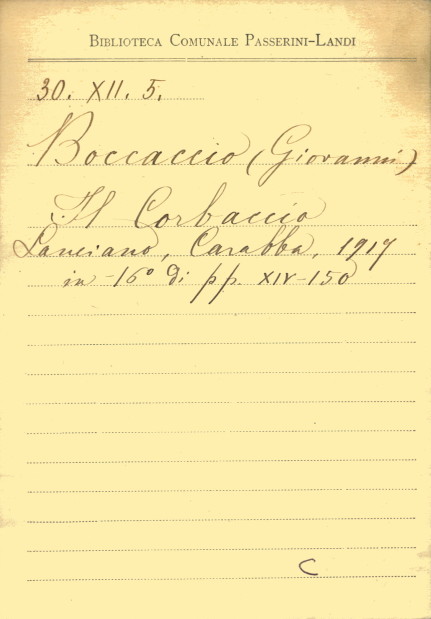 BIBLIOTECA COMUNALE PASSERINI-LANDI
30. XII. 5.
Boccaccio (Giovanni)
Il Corbaccio
Lanciano, Carabba, 1917
in -16° di pp. XIV-150
C